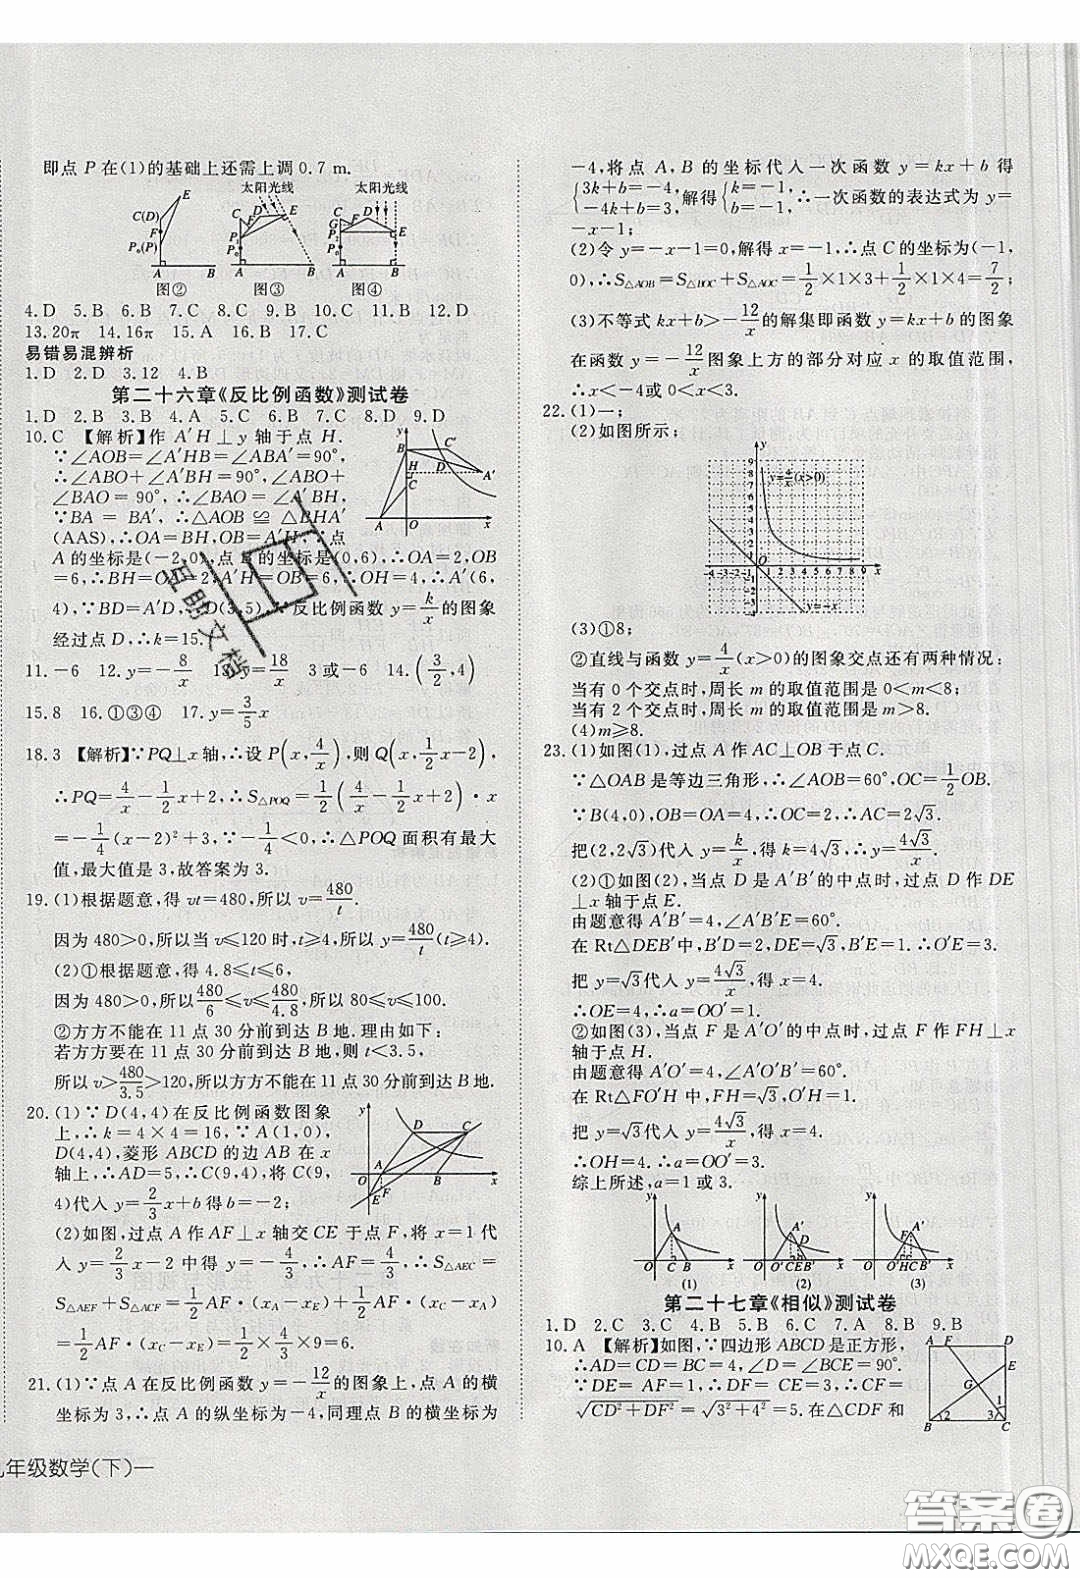 即点 P 在(1)的基础上还需上调 0.7 m.
太阳光线 太阳光线
图② 图③ 图④
4.D 5.B 6.B 7.C 8.C 9.B 10.C 11.B 12.D
13.20π 14.16π 15.A 16.B 17.C
易错易混辨析
1.D 2.D 3.12 4.B
第二十六章《反比例函数》测试卷
1.D 2.B 3.D 4.A 5.C 6.B 7.C 8.D 9.D
10.C 【解析】作 A′H⊥y 轴于点 H.
∵∠AOB=∠A′HB=∠ABA′=90°,
∴∠ABO+∠A′BH=90°,∠ABO+
∠BAO=90°,∴∠BAO=∠A′BH,
∵BA=BA′,∴△AOB≌△BHA′
(AAS),∴OA=BH,OB=A′H.∵点
A 的坐标是(-2,0),点 B 的坐标是(0,6),∴OA=2,OB
=6,∴BH=OA=2,A′H=OB=6,∴OH=4,∴A′(6,
4),∵BD=A′D,∴D(3,5),∵反比例函数 y=k/x 的图象
经过点 D,∴k=15.
11.-6 12.y=-8/x 13.y=18/x 3或-6 14.(3/2,4)
15.8 16.①③④ 17.y=3/5x
18.3 【解析】∵PQ⊥x 轴,∴设 P(x,4/x),则 Q(x,1/2x-2),
∴PQ=4/x-1/2x+2,∴S△POQ=1/2(4/x-1/2x+2)·x
=-1/4(x-2)²+3,∵-1/4<0,∴△POQ 面积有最大
值,最大值是 3,故答案为 3.
19.(1)根据题意,得 vt=480,所以 v=480/t.
因为 480>0,所以当 v≤120 时,t≥4,所以 v=480/t(t≥4).
(2)①根据题意,得 4.8≤t≤6,
因为 480>0,所以480/6≤v≤480/4.8,所以 80≤v≤100.
②方方不能在 11 点 30 分前到达 B 地.理由如下:
若方方要在 11 点 30 分前到达 B 地,则 t<3.5,
所以 v>480/3.5>120,所以方方不能在 11 点 30 分前到达 B 地.
20.(1)∵D(4,4)在反比例函数图象
上,∴k=4×4=16,∵A(1,0),
D(4,4),菱形 ABCD 的边 AB 在 x
轴上,∴AD=5,∴C(9,4),将 C(9,
4)代入 y=2/3x+b 得 b=-2;
(2)如图,过点 A 作 AF⊥x 轴交 CE 于点 F,将 x=1 代
入 y=2/3x-2 中得 y=-4/3,∴AF=4/3,∴S△AEC=
S△AEF+S△ACF=1/2AF·(xA-xE)+1/2AF·(xC-xA)
=1/2AF·(xC-xE)=1/2×4/3×9=6.
21.(1)∵点 A 在反比例函数 y=-12/x的图象上,点 A 的横
坐标为 3,∴点 A 的纵坐标为-4,同理点 B 的横坐标为
九年级数学(下)—
-4,将点 A,B 的坐标代入一次函数 y=kx+b 得
{3k+b=-4, -4k+b=3, 解得{k=-1, b=-1, ∴一次函数的表达式为 y=
-x-1;
(2)令 y=-x-1=0,解得 x=-1,∴点 C 的坐标为(-1,
0),∴S△AOB=S△BOC+S△AOC=1/2×1×3+1/2×1×4=7/2;
(3)不等式 kx+b>-12/x的解集即函数 y=kx+b 的图象
在函数 y=-12/x图象上方的部分对应 x 的取值范围,
∴x<-4或 0<x<3.
22.(1)一;
(2)如图所示:
y=4/x(x>0)
y=-x
(3)①8;
②直线与函数 y=4/x(x>0)的图象交点还有两种情况:
当有 0 个交点时,周长 m 的取值范围是 0<m<8;
当有 2 个交点时,周长 m 的取值范围是 m>8.
(4)m≥8.
23.(1)如图(1),过点 A 作 AC⊥OB 于点 C.
∵△OAB 是等边三角形,∴∠AOB=60°,OC=1/2OB.
∵B(4,0),OB=OA=4,∴OC=2,AC=2√3.
把(2,2√3)代入 y=k/x,得 k=4√3,∴y=4√3/x.
(2)①如图(2),当点 D 是 A′B′的中点时,过点 D 作 DE
⊥x 轴于点 E.
由题意得 A′B′=4,∠A′B′E=60°.
在 Rt△DEB′中,B′D=2,DE=√3,B′E=1.∴O′E=3.
把 y=√3代入 y=4√3/x,得 x=4.
∴OE=4,∴a=OO′=1.
②如图(3),当点 F 是 A′O′的中点时,过点 F 作 FH⊥x
轴于点 H.
由题意得 A′O′=4,∠A′O′B′=60°.
在 Rt△FO′H 中,FH=√3,O′H=1.
把 y=√3代入 y=4√3/x,得 x=4.
∴OH=4.∴a=OO′=3.
综上所述,a=1 或 3.
(1) (2) (3)
第二十七章《相似》测试卷
1.D 2.C 3.C 4.B 5.B 6.B 7.A 8.B 9.B
10.A 【解析】如图,∵四边形 ABCD 是正方形,
∴AD=CD=BC=4,∠BCE=90°.
∵DE=AF=1,∴DF=CE=3,∴CF=
√CD²+DF²=√3²+4²=5.在△CDF 和
互助文档
答案圈
MXQE.COM